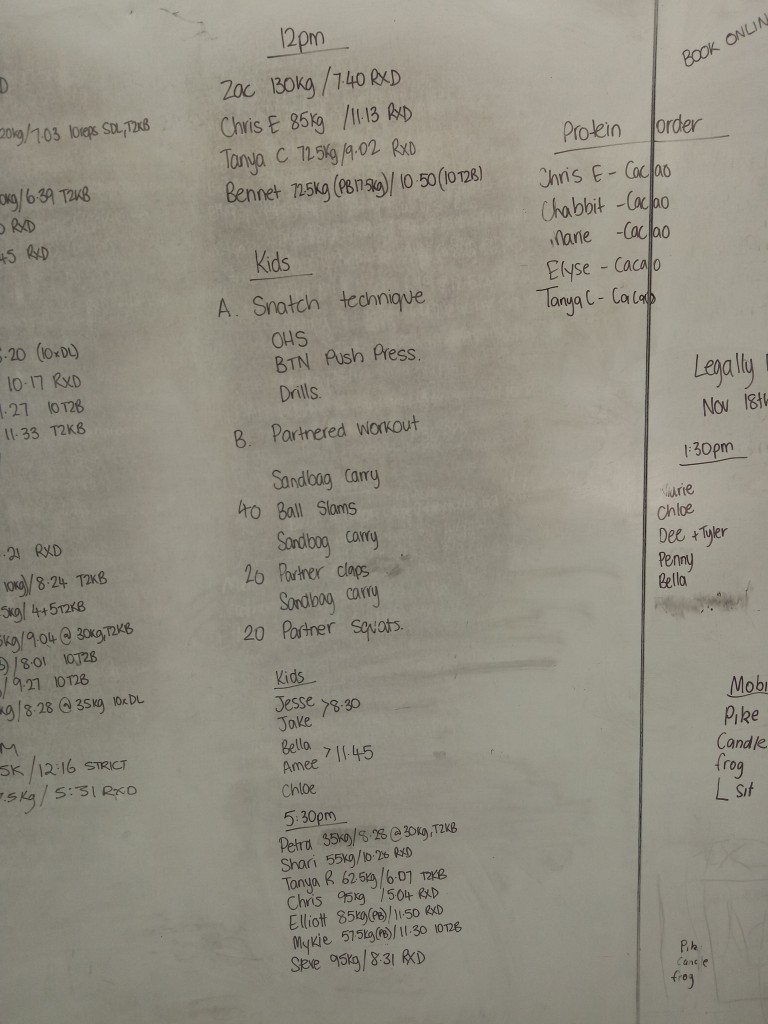 20kg/7.03 10reps SDL,T2KB
kg/6.39 T2KB
RXD
45 RXD
.20 (10xDL)
10.17 RXD
.27 10T2B
11.33 T2KB
.21 RXD
10kg)/8.24 T2KB
5kg/ 4+5T2KB
kg/9.04 @ 30kg,T2KB
)/8.01 10T2B
/9.27 10T2B
kg/8.28 @ 35kg 10xDL
M
5K/12:16 STRICT
7.5kg/5:31 RXD
12pm
Zac 130kg/7.40 RXD
Chris E 85kg /11.13 RXD
Tanya C 72.5kg/9.02 RXD
Bennet 72.5kg (PB 17.5kg)/10.50 (10T2B)
Kids
A. Snatch technique
OHS
BTN Push Press.
Drills.
B. Partnered workout
Sandbag carry
40 Ball Slams
Sandbag carry
20 Partner claps
Sandbag carry
20 Partner Squats.
Kids
Jesse
Jake >8.30
Bella
Amee >11.45
Chloe
5:30pm
Petra 35kg/8.28 @ 30kg,T2KB
Shari 55kg/10.26 RXD
Tanya R 62.5kg/6.07 T2KB
Chris 95kg /5.04 RXD
Elliott 85kg(PB)/11.50 RXD
Mykie 57.5kg(PB)/11.30 10T2B
Steve 95kg/8.31 RXD
Protein order
Chris E - Cacao
Chabbit - Cacao
- Cacao
Elyse - Cacao
Tanya C - Cacao
BOOK ONLIN
Legally
Nov 18th
1:30pm
Marie
Chloe
Dee + Tyler
Penny
Bella
Mobi
Pike
Candle
frog
L sit
Pike
Candle
frog